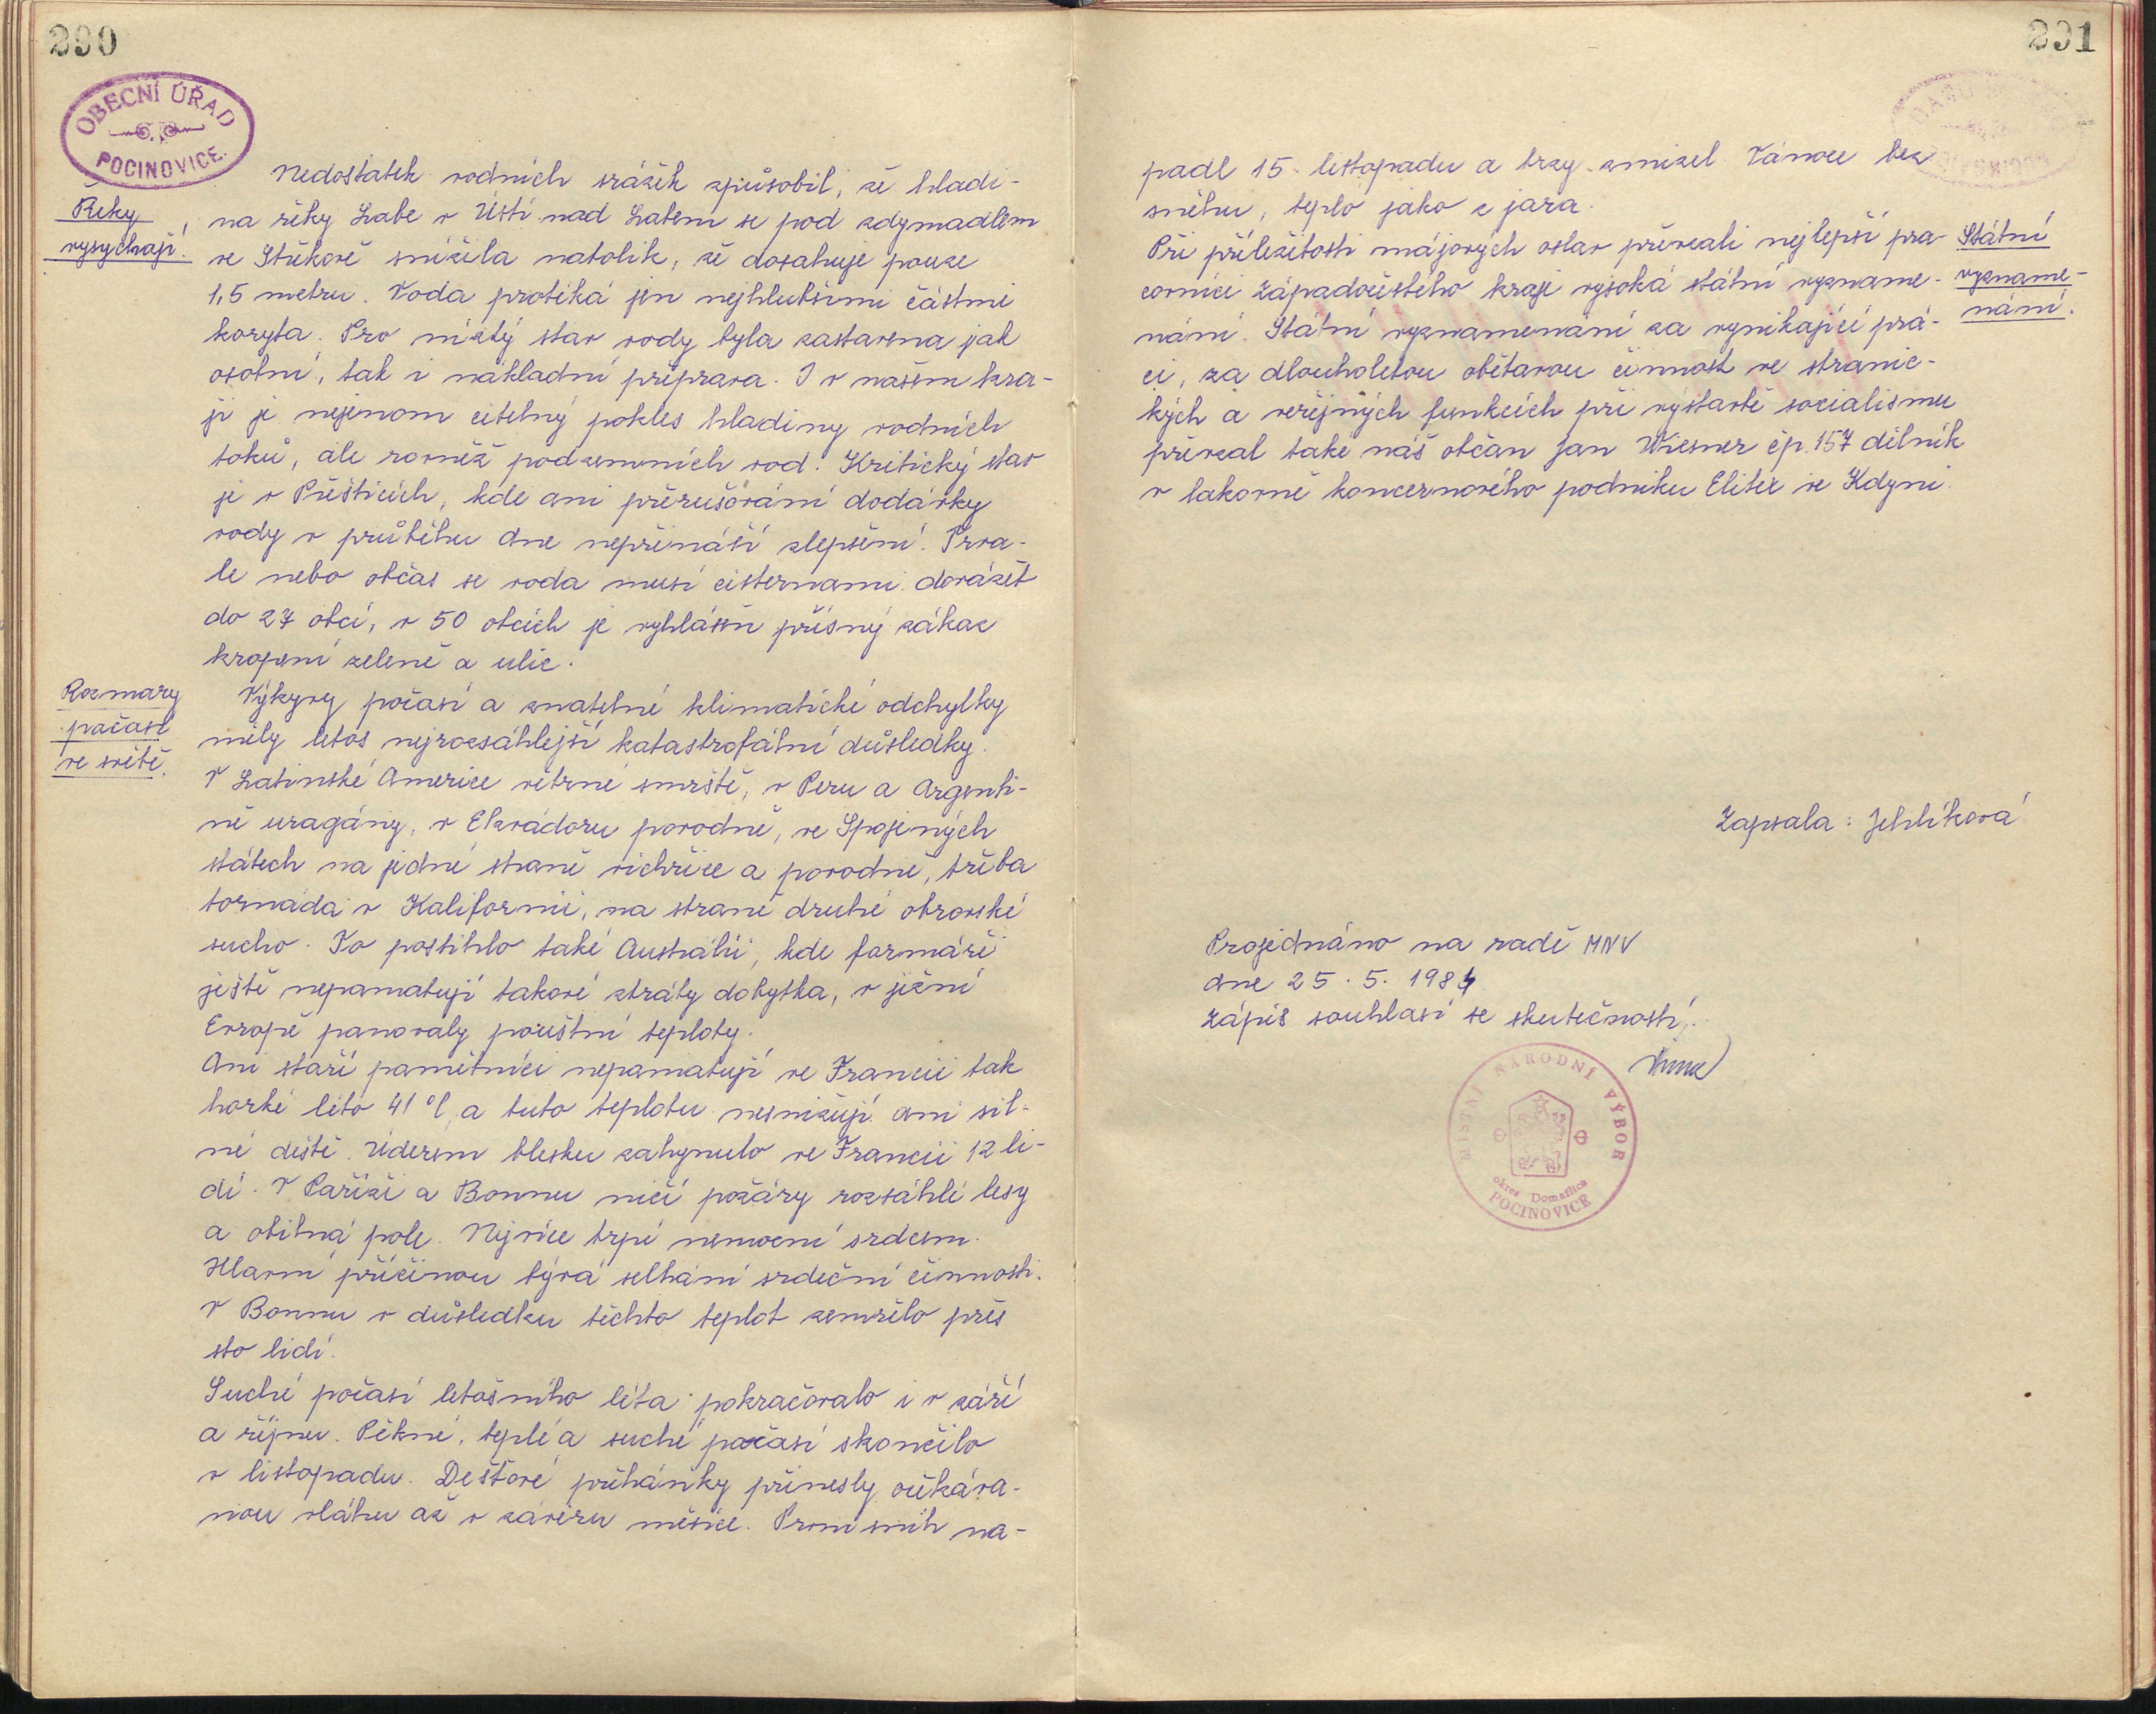 290
OBECNÍ ÚŘAD
POCINOVICE.
Řeky
vysychají.
Nedostatek vodních srážek způsobil, že hladi-
na řeky Labe v Ústí nad Labem se pod zdymadlem
ve Střekově snížila natolik, že dosahuje pouze
1,5 metru. Voda protéká jen nejhlubšími částmi
koryta. Pro nízký stav vody byla zastavena jak
osobní, tak i nákladní přeprava. I v našem kra-
ji je nejenom citelný pokles hladiny vodních
toků, ale rovněž podzemních vod. Kritický stav
je v Přešticích, kde ani přerušování dodávky
vody v průběhu dne nepřináší zlepšení. Trva-
le nebo občas se voda musí cisternami dovážet
do 27 obcí, v 50 obcích je vyhlášen přísný zákaz
kropení zeleně a ulic.
Rozmary
počasí
ve světě.
Výkyvy počasí a znatelné klimatické odchylky
měly letos nejrozsáhlejší katastrofální důsledky.
V Latinské Americe větrné smrště, v Peru a Argenti-
ně uragány, v Ekvádoru povodně, ve Spojených
státech na jedné straně vichřice a povodně, třeba
tornáda v Kalifornii, na straně druhé obrovské
sucho. To postihlo také Austrálii, kde farmáři
ještě nepamatují takové ztráty dobytka, v jižní
Evropě panovaly pouštní teploty.
Ani staří pamětníci nepamatují ve Francii tak
horké léto 41°C, a tuto teplotu nesnižují ani sil-
né deště. Úderem blesku zahynulo ve Francii 12 li-
dí. V Paříži a Bonnu ničí požáry rozsáhlé lesy
a obilná pole. Nejvíce trpí nemocní srdcem.
Hlavní příčinou bývá selhání srdeční činnosti.
V Bonnu v důsledku těchto teplot zemřelo přes
sto lidí.
Suché počasí letošního léta pokračovalo i v září
a říjnu. Pěkné, teplé a suché počasí skončilo
v listopadu. Dešťové přeháňky přinesly očekáva-
nou vláhu až v závěru měsíce. První sníh na-
291
padl 15. listopadu a brzy zmizel. Vánoce bez
sněhu, teplo jako z jara.
Státní
vyzname-
nání.
Při příležitosti májových oslav převzali nejlepší pra-
covníci Západočeského kraje vysoká státní vyzname-
nání. Státní vyznamenání za vynikající prá-
ci, za dlouholetou obětavou činnost ve stranic-
kých a veřejných funkcích při výstavbě socialismu
převzal také náš občan Jan Wiesner čp. 157 dělník
v lakovně koncernového podniku Elitex ve Kdyni.
Zapsala: Jehlíková
Projednáno na radě MNV
dne 25. 5. 1984
Zápis souhlasí se skutečností.
MÍSTNÍ NÁRODNÍ VÝBOR
okres Domažlice
POCINOVICE